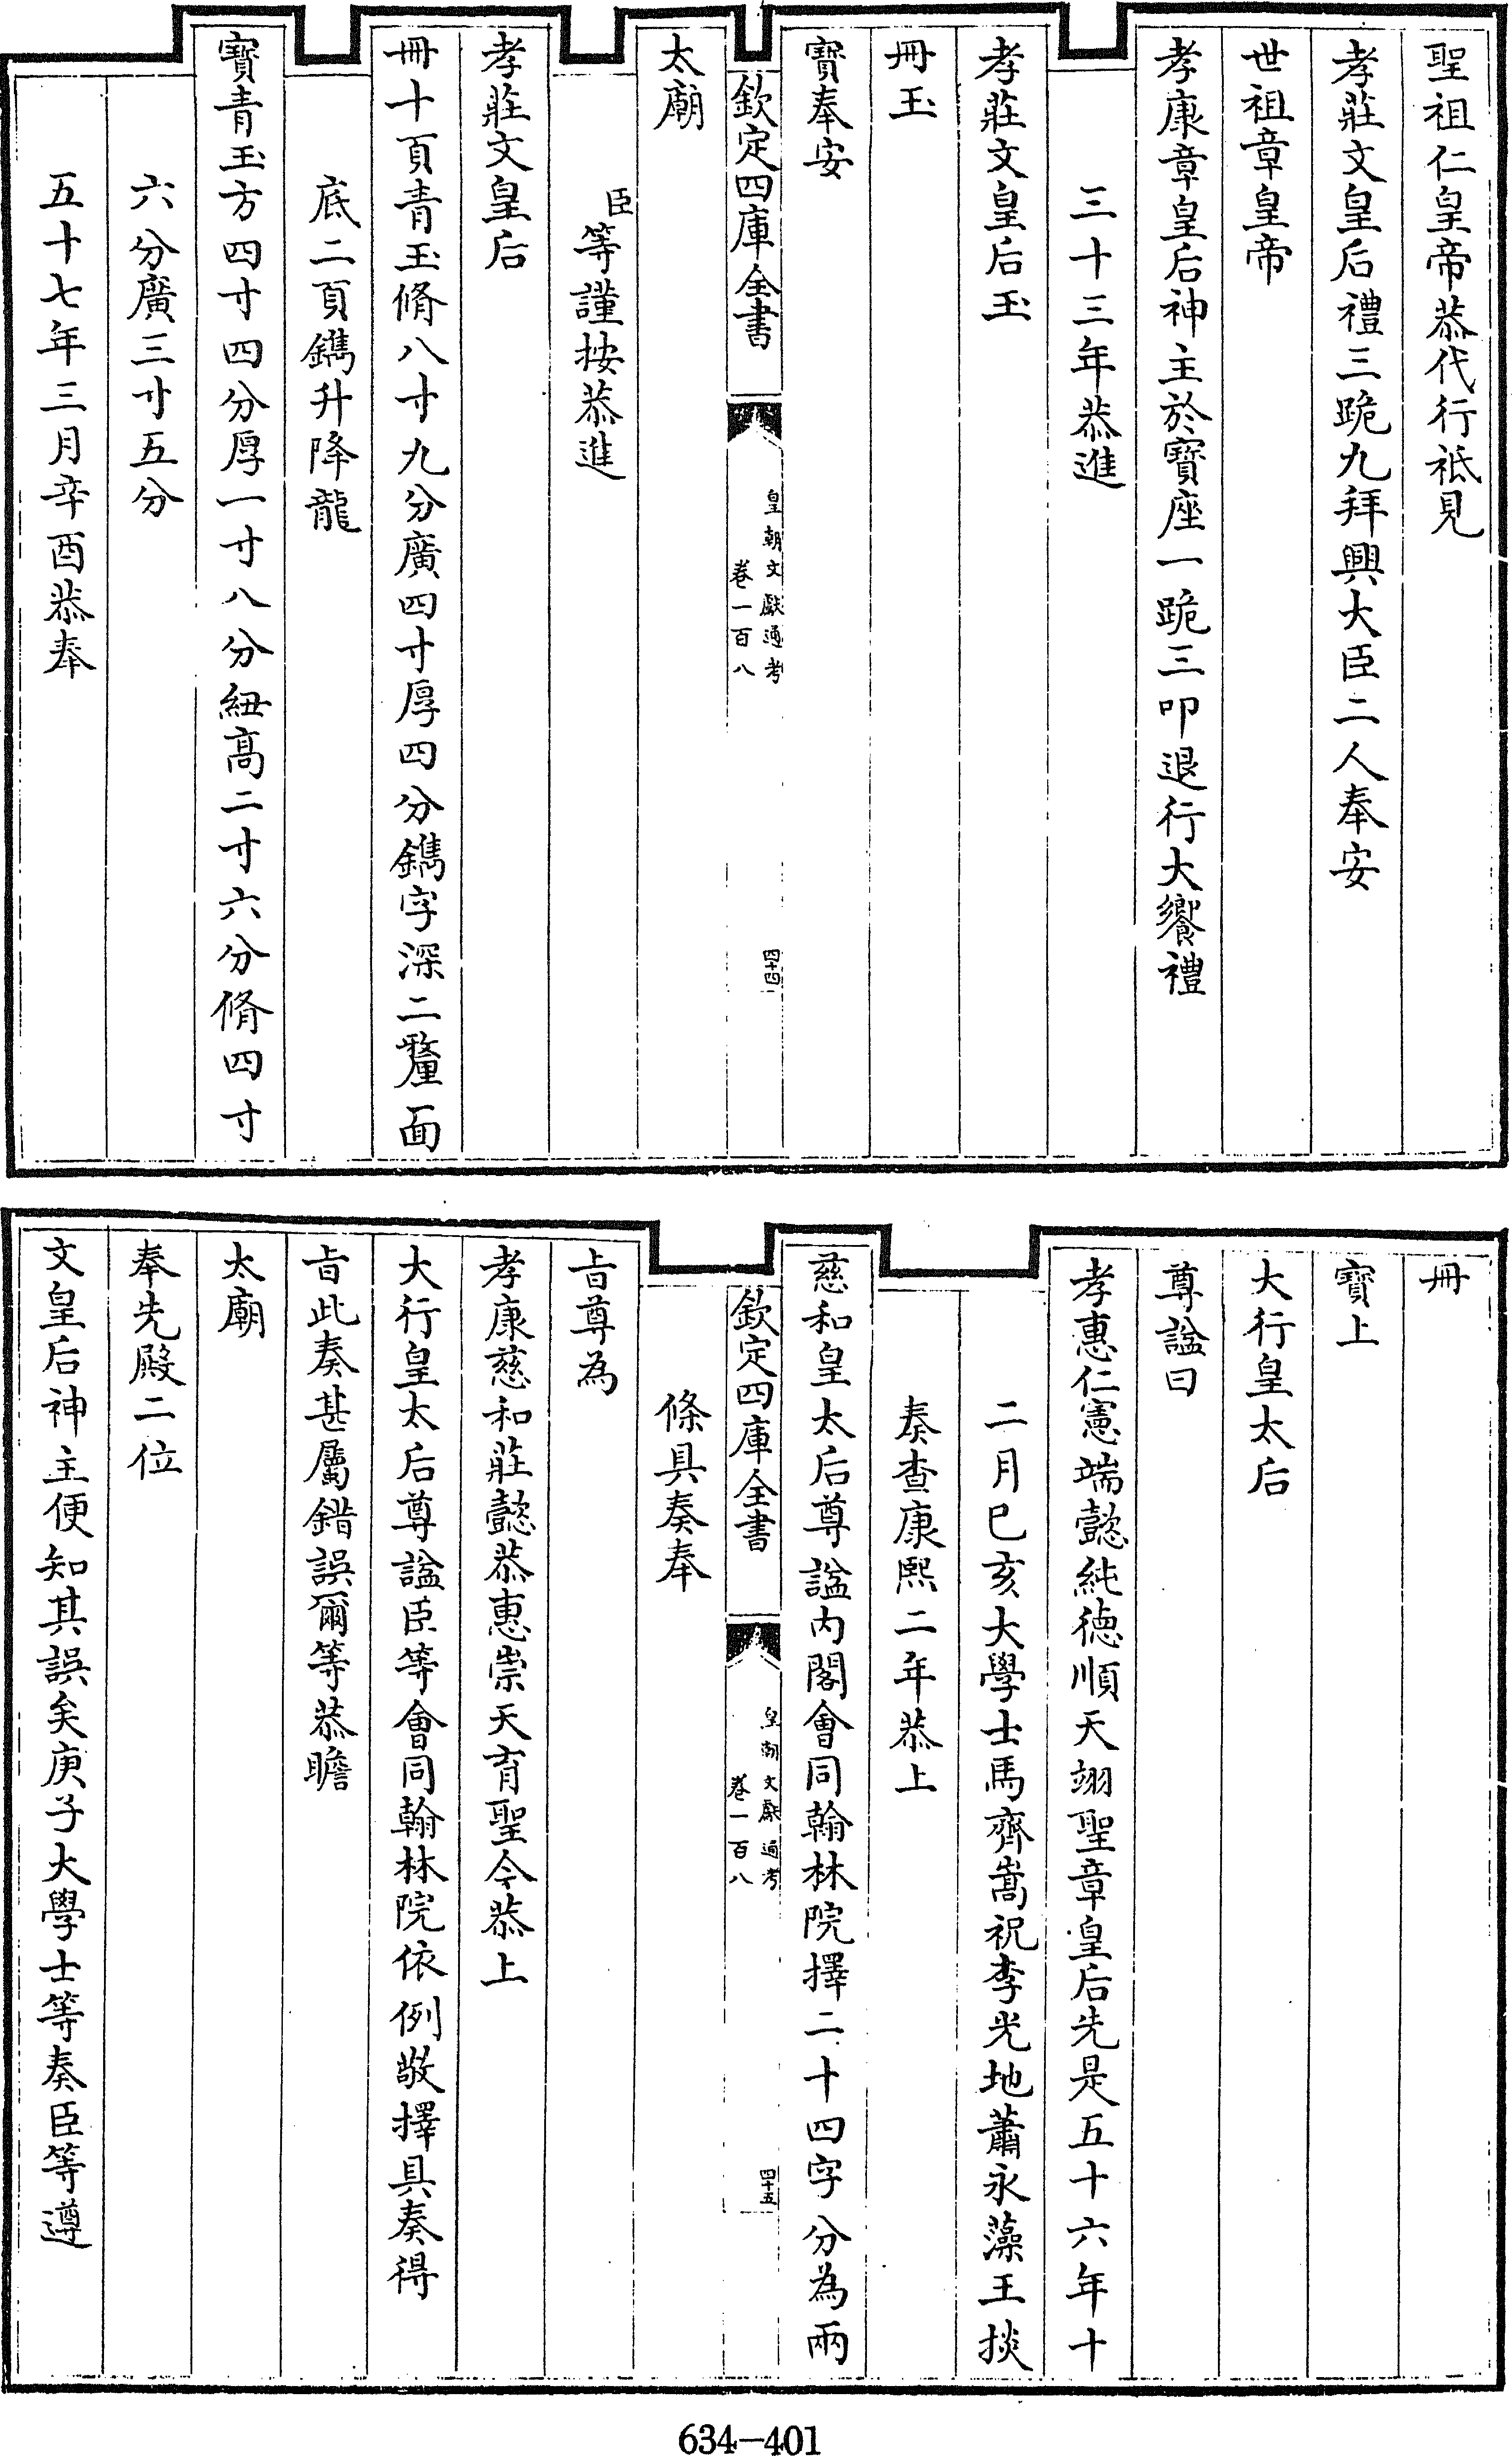 聖祖仁皇帝恭代行祗見
孝莊文皇后禮三跪九拜興大臣二人奉安
世祖章皇帝
孝康章皇后神主於寶座一跪三叩退行大饗禮
三十三年恭進
孝莊文皇后玉
冊玉
寶奉安
欽定四庫全書
皇朝文獻通考
卷一百八
四十四
太廟
臣等謹按恭進
孝莊文皇后
冊十頁青玉脩八寸九分廣四寸厚四分鐫字深二釐面
底二頁鐫升降龍
寶青玉方四寸四分厚一寸八分紐高二寸六分脩四寸
六分廣三寸五分
五十七年三月辛酉恭奉
冊
寶上
大行皇太后
尊諡曰
孝惠仁憲端懿純德順天翊聖章皇后先是五十六年十
二月已亥大學士馬齊嵩祝李光地蕭永藻王掞
奏查康熙二年恭上
慈和皇太后尊諡内閣會同翰林院擇二十四字分為兩
欽定四庫全書
皇朝文獻通考
卷一百八
四十五
條具奏奉
旨尊為
孝康慈和莊懿恭惠崇天育聖今恭上
大行皇太后尊諡臣等會同翰林院依例敬擇具奏得
旨此奏甚屬錯誤爾等恭瞻
太廟
奉先殿二位
文皇后神主便知其誤矣庚子大學士等奏臣等遵
634-401